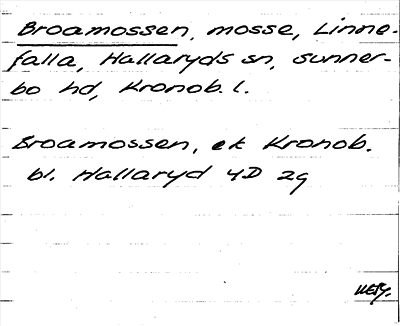 Broamossen, mosse, Linne-
falla, Hallaryds sn, Sunner-
bo hd, Kronob. l.
Broamossen, ek Kronob.
bl. Hallaryd 4D 2g